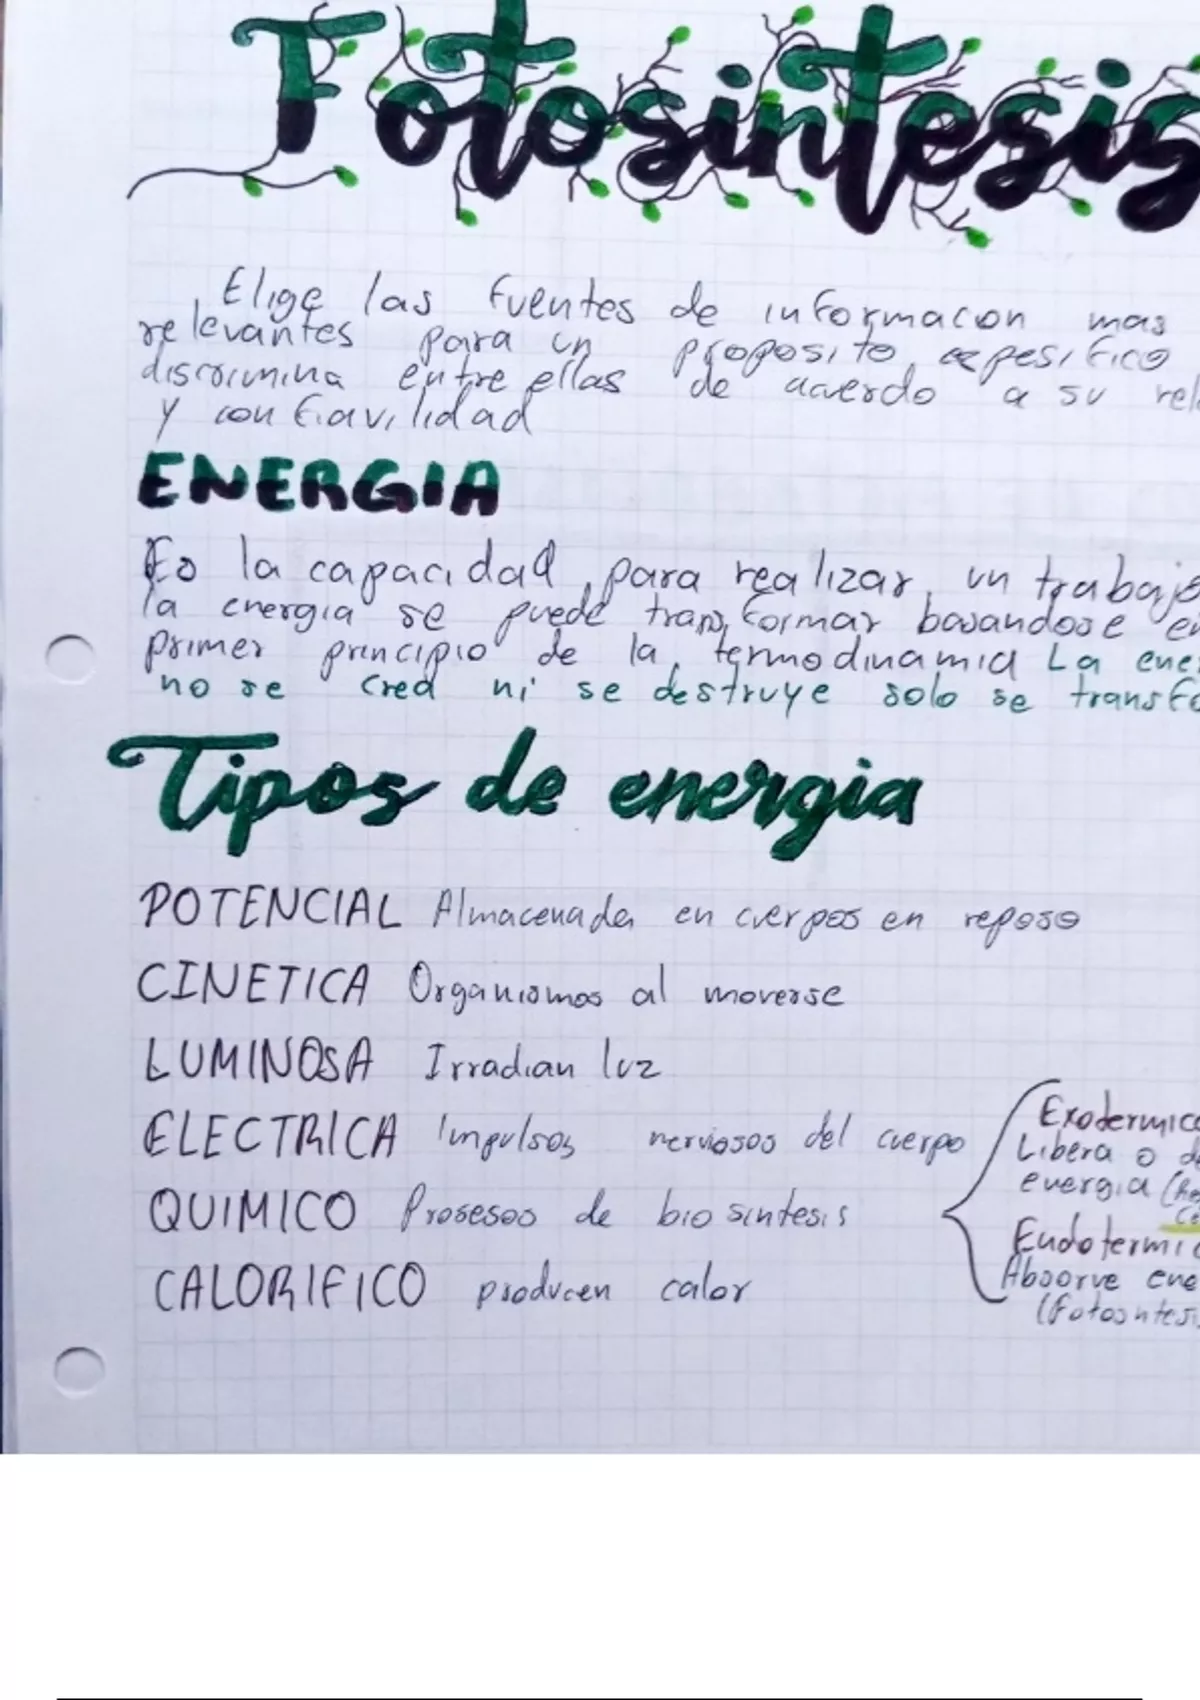 Fotosintesis
Elige las fuentes de informacion mas
relevantes para un proposito espesifico
discrimina entre ellas de acuerdo a su rel
y confiavilidad
ENERGIA
Es la capacidad para realizar un trabajo
la energia se puede transformar basandose en
primer principio de la termodinamica La ener
no se crea ni se destruye solo se transfo
Tipos de energia
POTENCIAL Almacenada en cuerpos en reposo
CINETICA Organismos al moverse
LUMINOSA Irradian luz
ELECTRICA Impulsos nerviosos del cuerpo
QUIMICO Prosesos de biosintesis
CALORIFICO producen calor
Exotermico
Libera o d
energia (Re
Ce
Endotermic
Absorve ene
(fotosintesi